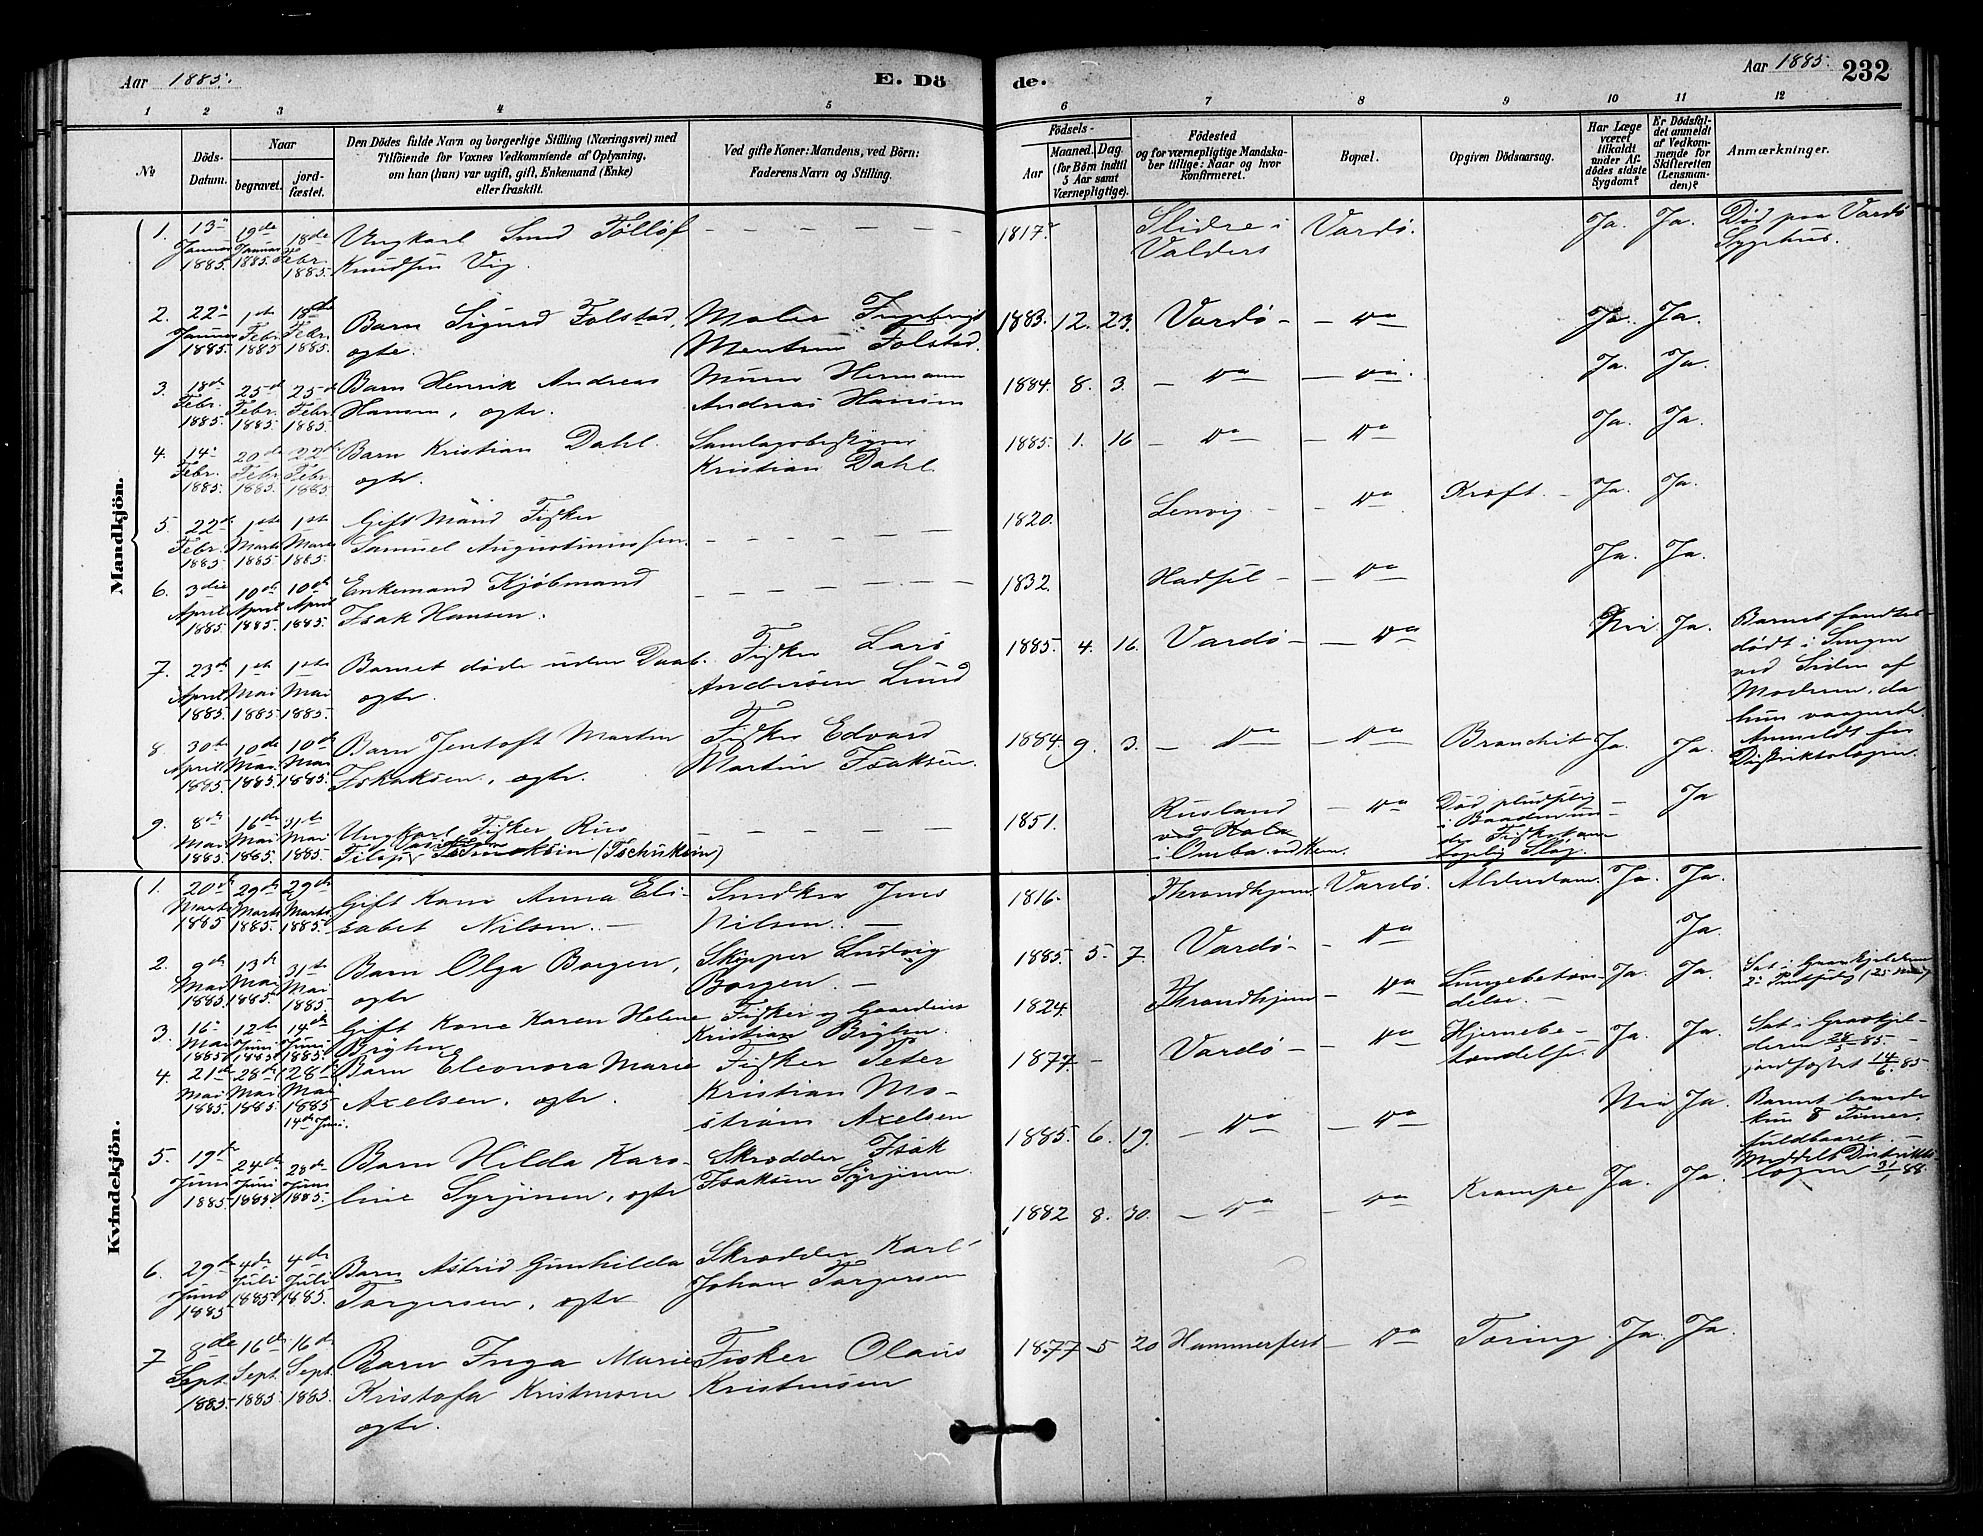 Aar 1885.
E. Dö
de.
Aar 1885.
232
1 2 3 4 5 6 7 8 9 10 11 12
No
Döds-
Datum.
Naar
begravet.
jord-
fæstet.
Den Dödes fulde Navn og borgerlige Stilling (Næringsvei) med
Tilföiende for Voxnes Vedkommende af Oplysning,
om han (hun) var ugift, gift, Enkemand (Enke)
eller fraskilt.
Ved gifte Koner: Mandens, ved Börn:
Faderens Navn og Stilling.
Födsels-
Aar
Maaned. Dag
(for Börn indtil
5 Aar samt
Værnepligtige).
Födested
og for værnepligtige Mandska-
ber tillige: Naar og hvor
konfirmeret.
Bopæl.
Opgiven Dödsaarsag.
Har Læge
været
tilkaldt
under Af-
dödes sidste
Sygdom?
Er Dödsfal-
det anmeldt
af Vedkom-
mende for
Skifteretten
(Lensman-
den)?
Anmærkninger.
Mandkjön.
1. 13de 19de 18de Ungkarl — — — — — 1817. Slidre i Vardö. Ja. Ja. Död paa Vardö
Januar Januar Febr. Knudsen Vig. Valders Sygehus.
1885. 1885. 1885.
2. 22de 1ste 18de Barn Sigurd Folstad, Maler Ingebrigt 1883. 12. 23. Vardö — Do Ja. Ja.
Januar Febr. Febr. ægte. Folstad.
1885. 1885 1885.
3. 18de 25de 25de Barn Henrik Andreas Murer Hermann 1884. 8. 3. — Do — Do Ja. Ja.
Febr. Febr. Febr. Hansen, ægte. Andreas Hansen
1885. 1885. 1885.
4. 14de 20de 22de Barn Kristian Dahl. Samlagsbestyrer 1885. 1. 16 — Do — Do Ja. Ja.
Febr. Febr. Febr. ægte. Kristian Dahl.
1885. 1885. 1885
5. 22de 1ste 1ste Gift Mand Fisker — — — — — 1820. Lenvig — Do Kræft. — Ja. Ja.
Febr. Marts Marts Samuel Augustinussen.
1885. 1885. 1885.
6. 3die 10de 10de Enkemand Kjöbmand — — — — — 1832. Hadsel — Do Ja. Ja.
April April April Isak Hansen.
1885. 1885. 1885.
7. 23de 1ste 1ste Barnet döde uden Daab. Fisker Lars 1885. 4. 16. Vardö — Do Nei Ja. Barnet fandtes
April Mai Mai ægte. Andersen Lund dödt i Sengen
1885. 1885. 1885. ved Siden af
Moderen, da
hun vaagnede.
Anmeldt for
Distriktslægen.
8. 30te 10de 10de Barn Jentoft Martin Fisker Edvard 1884. 9. 3. — Do — Do Bronchit Ja. Ja.
April Mai Mai Isaksen, ægte. Martin Isaksen.
1885. 1885. 1885.
9. 8de 16de 31te Ungkarl Fisker Rus — — — — — 1851. Rusland — Do Död pludselig — Ja
Mai Mai Mai (Tschuksin) ved Kola i Baaden un-
1885. 1885. 1885. i Omba ved Kem. der Fiske
Slag.
Kvindekjön.
1. 20de 29de 29de Gift Kone Anna Eli- Snedker Jens 1816. Throndhjem Vardö. Alderdom Ja. Ja.
Marts Marts Marts sabet Nilsen. — Nilsen. —
1885. 1885. 1885.
2. 9de 13de 31te Barn Olga Borgen, Skipper Ludvig 1885. 5. 7. Vardö — Do Ja.
Mai Mai Mai ægte Borgen. —
1885. 1885. 1885
3. 16de 12te 14de Gift Kone Karen Helene Fisker og Gaardeier 1824. Throndhjem — Do Lungebetæn- Ja. Ja. Sat i Gravkjelderen
Mai Juni Juni Bröhn Kristian Bröhn. delse. —
1885 1885 1885.
4. 21de 28de 28de Barn Eleonora Marie Fisker Peter 1877 — Vardö — Do Hjernebe- Ja. Ja. Sat i Gravkjel-
Mai Mai Mai Axelsen, ægte. Kristian Mo- tændelse. deren 28/5 85 —
1885. 1885. 1885 ström Axelsen jordfæstet 14/6 85
14de Juni.
5. 19de 24de 28de Barn Hilda Karo- Skrædder Isak 1885. 6. 19. — Do — Do Nei Ja. Barnet levede
Juni Juni Juni line Syrjinen, ægte Isaksen Syrjinen. kun 8 Timer,
1885. 1885. 1885. fuldbaaret. —
Meddelt Distrikts-
lægen
6. 29de 4de 4de Barn Astrid Gunhilda Skrædder Karl 1882 8. 30. — Do — Do Krampe Ja. Ja.
Juni Juli Juli Torgersen, ægte Johan Torgersen
1885 1885. 1885.
7 8de 16de 16de Barn Inga Marie Fisker Olaus 1877 5 20 Hammerfest — Do Tæring. Ja. Ja.
Sept. Sept. Sept. Kristofa Kristensen Kristensen
1885. 1885. 1885. ægte.